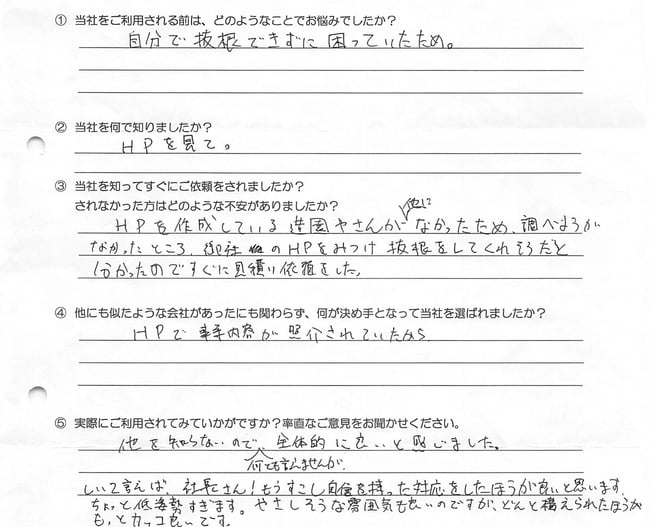 ① 当社をご利用される前は、どのようなことでお悩みでしたか？
自分で抜根できずに困っていたため。
② 当社を何で知りましたか？
HPを見て。
③ 当社を知ってすぐにご依頼をされましたか？
されなかった方はどのような不安がありましたか？
他に
HPを作成している造園やさんがなかったため、調べようが
なかったところ、御社のHPをみつけ抜根をしてくれそうだと
分かったのですぐに見積り依頼をした。
④ 他にも似たような会社があったにも関わらず、何が決め手となって当社を選ばれましたか？
HPで 内容が 照介されていたから
⑤ 実際にご利用されてみていかがですか？率直なご意見をお聞かせください。
他を知らないので、全体的に良いと感じました。
何とも言えませんが、
しいて言えば、社長さん！もうすこし自信を持った対応をしたほうが良いと思います。
ちょっと低姿勢すぎます。やさしそうな雰囲気も良いのですが、どんと構えられたほうが
もっとカッコ良いです。